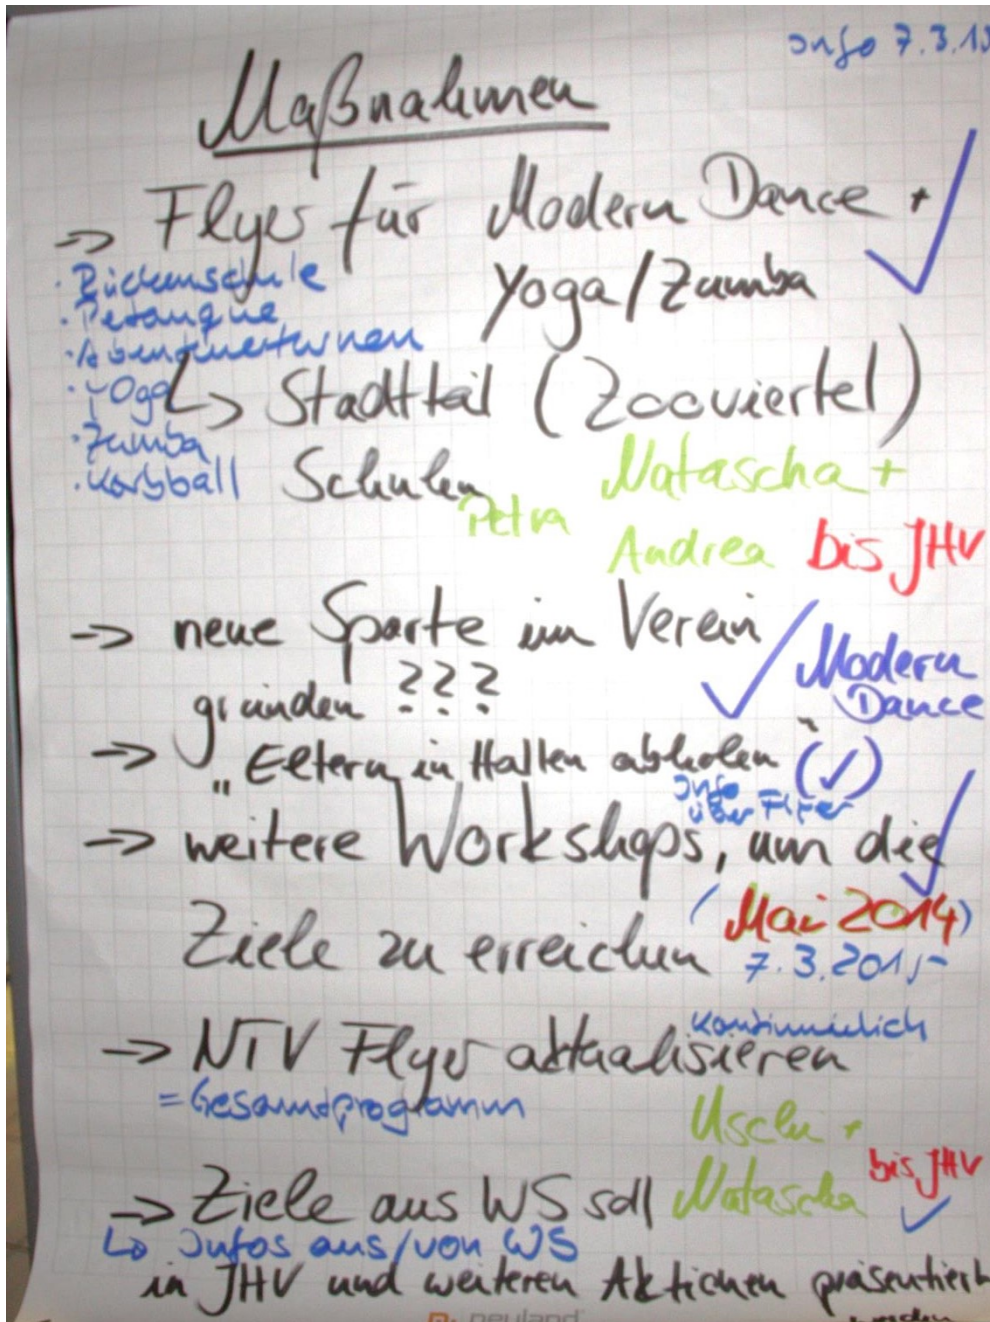 Info 7.3.15
Maßnahmen
-> Flyer für Modern Dance +
Yoga/Zumba
· Rückenschule
· Petanque
· Abenteuerturnen
· Yoga
· Zumba
· Korbball
↳ Stadtteil (Zooviertel)
Schulen
Petra
Natascha +
Andrea bis JHV
-> neue Sparte im Verein
gründen ???
Modern
Dance
-> „Eltern in Hallen abholen“ (✓)
Info
über Flyer
-> weitere Workshops, um die
Ziele zu erreichen
(Mai 2014)
7.3.2015
kontinuierlich
-> NTV Flyer aktualisieren
= Gesamtprogramm
Uschi +
Natascha
bis JHV
-> Ziele aus WS soll
↳ Infos aus/von WS
in JHV und weiteren Aktionen präsentiert
werden
neuland